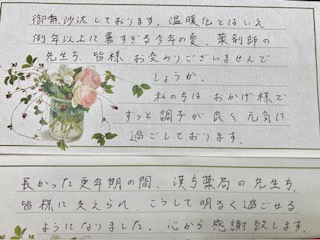 御無沙汰しております。温暖化とはいえ
例年以上に暑すぎる今年の夏、薬剤師の
先生方、皆様、お変わりございませんで
しょうか。
私の方は おかげ様で
ずっと調子が良く元気に
過ごしております。
長かった更年期の間、漢方薬局の先生方、
皆様に支えられ、こうして明るく過ごせる
ようになりました。心から感謝致します。